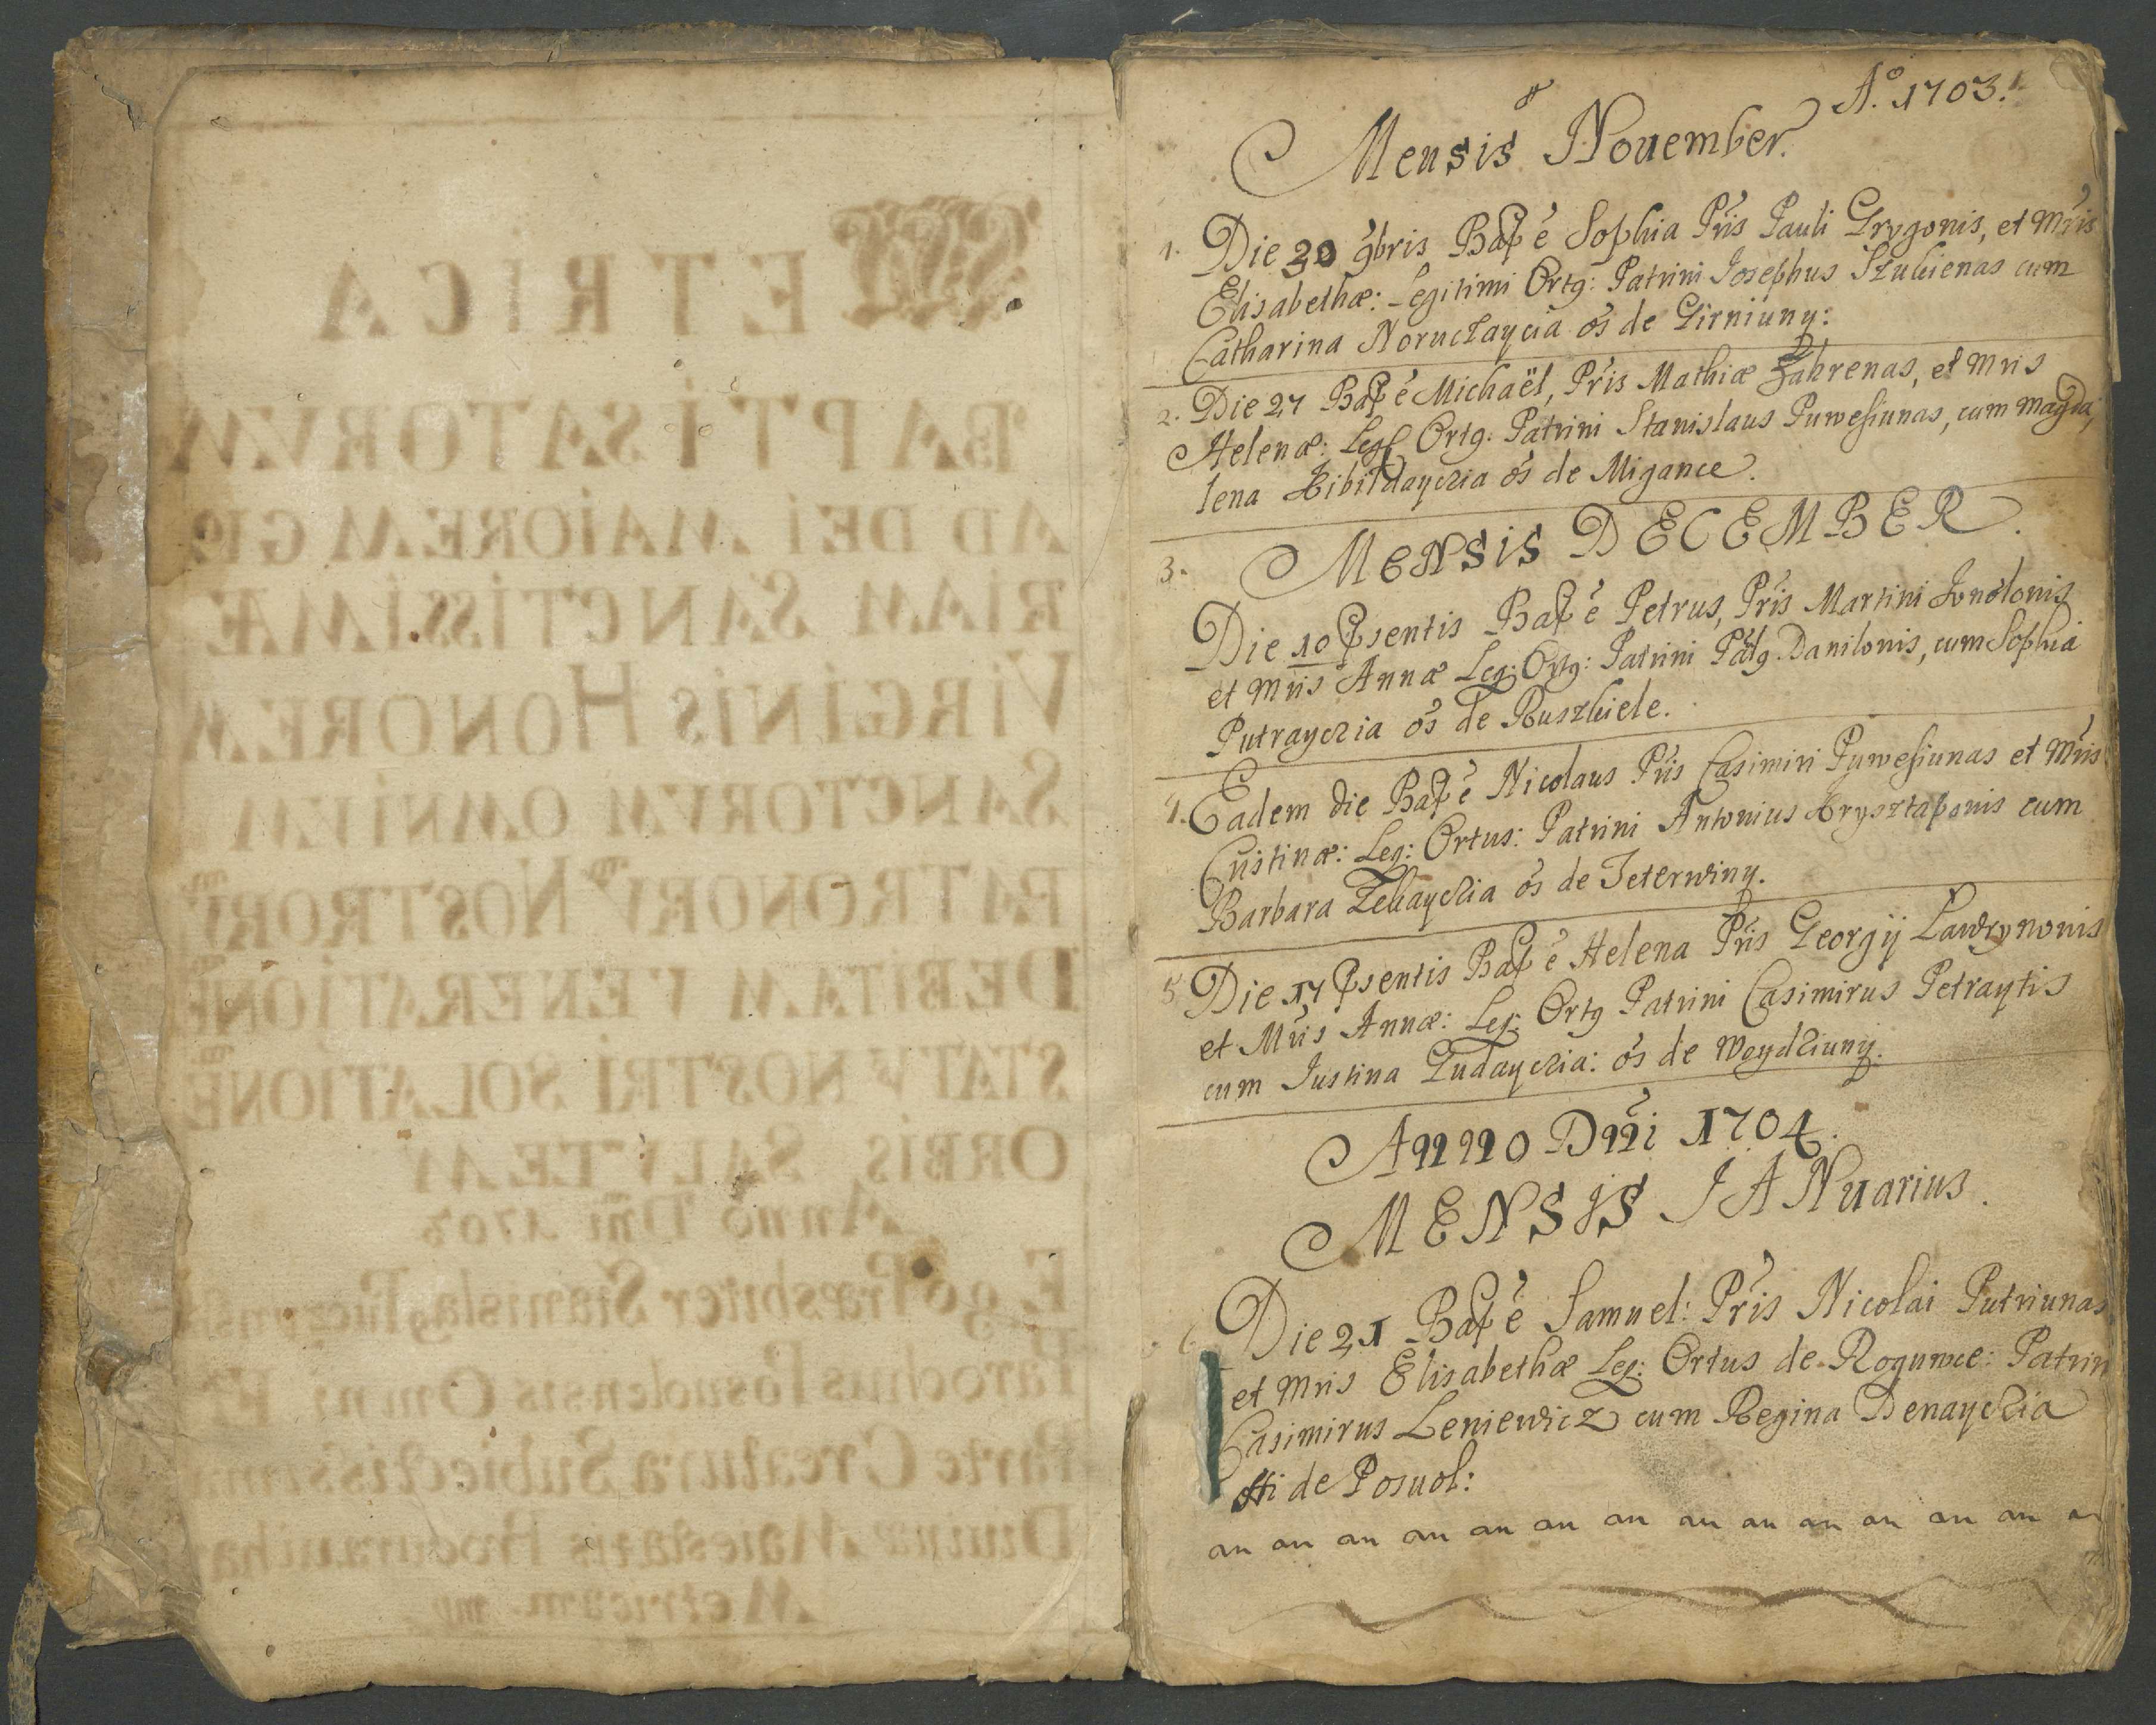 METRICA
BAPTISATORVM
AD DEI MAIOREM GLO
RIAM SANCTISSIMÆ
VIRGINIS HONOREM
SANCTORVM OMNIVM
PATRONORV̅ NOSTRORV̅
DEBITAM VENERATIONE̅
STATV NOSTRI SOLATIONE̅
ORBIS SALVTEM
Anno Dni 1703
Ego Præsbiter Stanislaꝯ
Parochus Posuolensis Omni
Parte Creatura Subiectissima
Diuinæ Maiestatis
Metricam mp
Aº. 1703.
Mensis Nouember.
1. Die 30 9bris Bapt̃ ẽ Sophia Pr̃is Pauli Grygonis, et Mr̃is
Elisabethæ: Legitimi Ortꝯ: Patrini Josephus Szukienas cum
Catharina Noruczaycia õs de Girniuny:
2. Die 27 Bapt̃ ẽ Michaël, Pr̃is Mathiæ Zahrenas, et Mr̃is
Helenæ: Leg Ortꝯ. Patrini Stanislaus Puwesiunas, cum Magda,
lena Kibildayczia õs de Migance.
3. MENSIS DECEMBER.
Die 10 Psentis Bapt̃ ẽ Petrus, Pr̃is Martini
et Mr̃is Annæ Leg: Ortꝯ: Patrini Danilonis, cum Sophia
Putrayczia õs de Ruszkiele.
4. Eadem die Bapt̃ ẽ Nicolaus Pr̃is Casimiri Puwesiunas et Mr̃is
Cristinæ: Leg: Ortus: Patrini Antonius Krysztaponis cum
Barbara Zekayczia õs de Teterwiny.
5 Die 17 Psentis Bapt̃ ẽ Helena Pr̃is Georgij Lawrynonis
et Mr̃is Annæ: Leg: Ortꝯ Patrini Casimirus Petraytis
cum Justina Gudayczia: õs de Woydziuny.
Anno Dñi 1704.
MENSIS JANuarius.
6. Die 21 Bapt̃ ẽ Samuel: Pr̃is Nicolai Putriunas
et Mr̃is Elisabethæ Leg: Ortus de Roguwce: Patrin
Casimirus Leniewicz cum Regina Denayczia
de Posuol:
an an an an an an an an an an an an an an